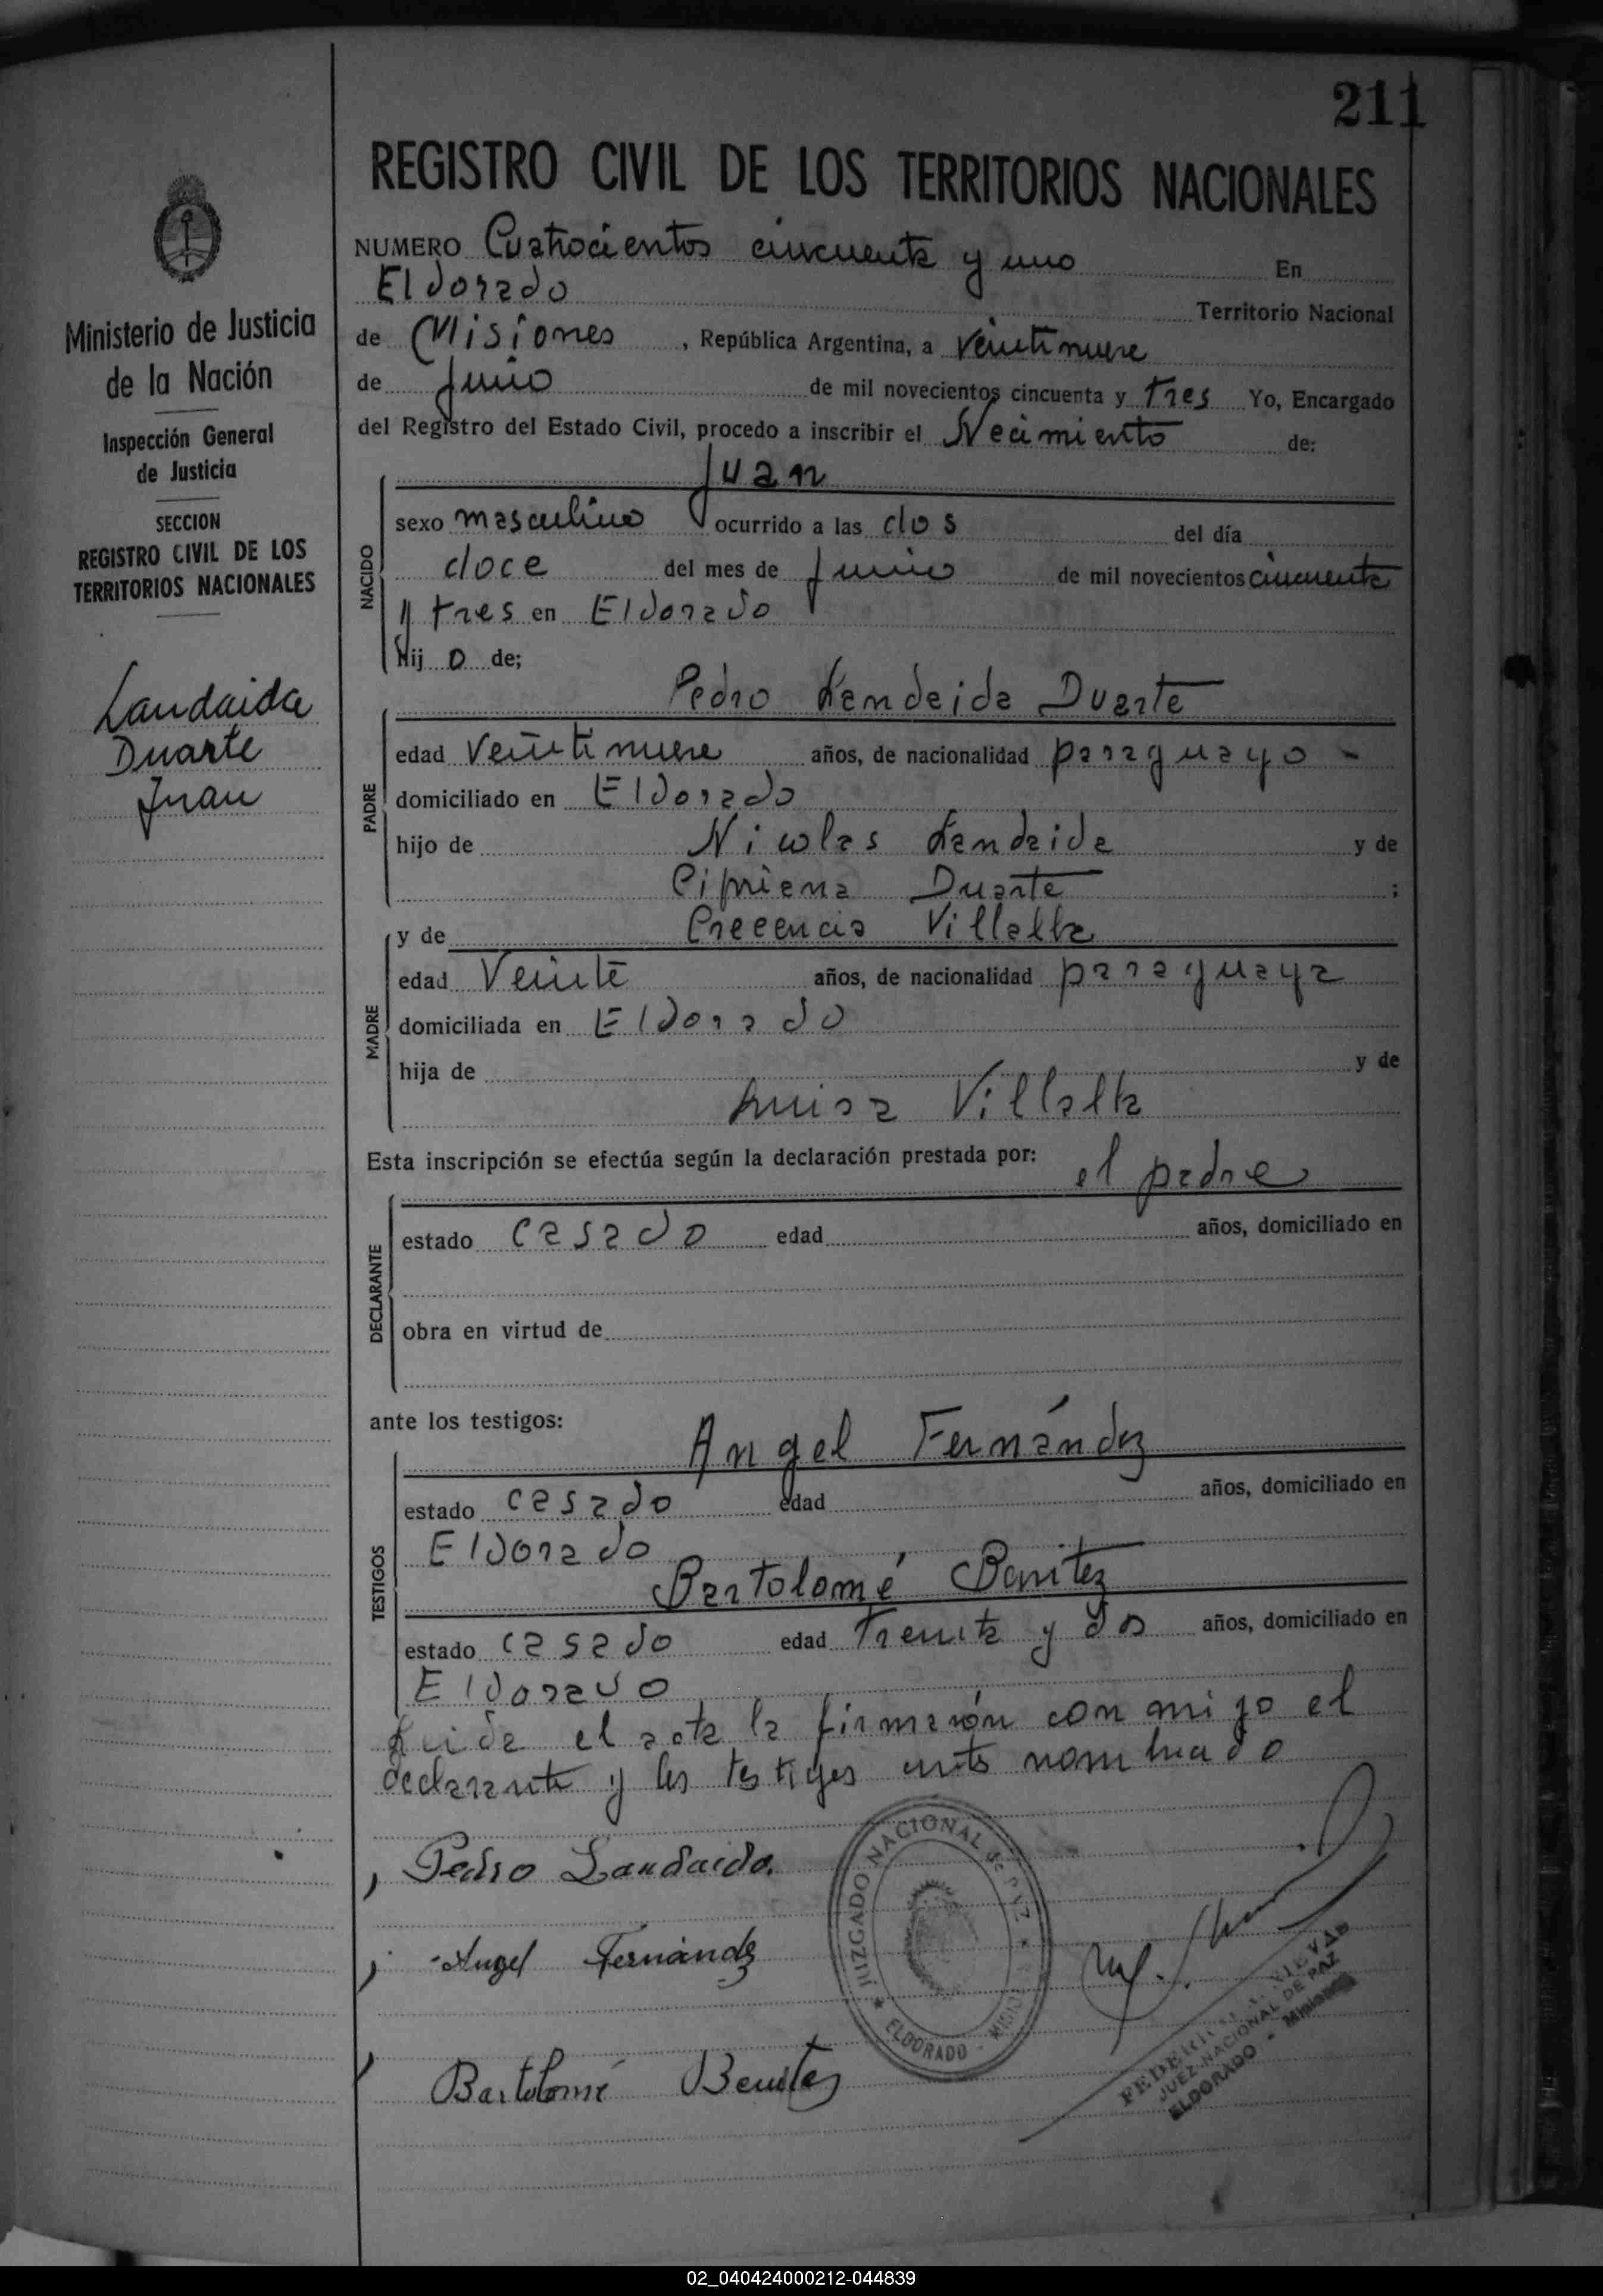 211
REGISTRO CIVIL DE LOS TERRITORIOS NACIONALES
NUMERO Cuatrocientos cincuenta y uno En
Eldorado Territorio Nacional
de Misiones, República Argentina, a veintinueve
de Junio de mil novecientos cincuenta y tres Yo, Encargado
del Registro del Estado Civil, procedo a inscribir el Nacimiento de:
Juan
NACIDO
sexo masculino ocurrido a las dos del día
doce del mes de Junio de mil novecientos cincuenta
y tres en Eldorado
hij o de;
Pedro Landaida Duarte
PADRE
edad veintinueve años, de nacionalidad paraguayo -
domiciliado en Eldorado
hijo de Nicolas Landaida y de
Cipriana Duarte ;
y de Crecencia Villalba
MADRE
edad Veinte años, de nacionalidad paraguaya
domiciliada en Eldorado
hija de y de
Luisa Villalba
Esta inscripción se efectúa según la declaración prestada por: el padre
DECLARANTE
estado casado edad años, domiciliado en
obra en virtud de
ante los testigos: Angel Fernández
TESTIGOS
estado casado edad años, domiciliado en
Eldorado
Bartolomé Benitez
estado casado edad Treinta y dos años, domiciliado en
Eldorado
Leida el acta la firmarón conmigo el
declarante y los testigos ante nombrado
Pedro Landaida.
Angel Fernández
Bartolomé Benitez
JUZGADO NACIONAL de PAZ
ELDORADO - MISIONES
JUEZ NACIONAL DE PAZ
ELDORADO - Misiones
Ministerio de Justicia
de la Nación
Inspección General
de Justicia
SECCION
REGISTRO CIVIL DE LOS
TERRITORIOS NACIONALES
Landaida
Duarte
Juan
02_040424000212-044839